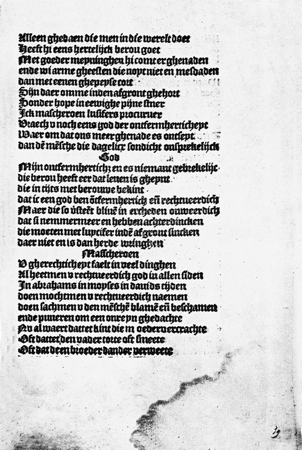 Alleen ghedaen die men in die werelt doet
Heeft hi eens hertelijck berou goet
Met goeder meyninghen hi comt er ghenaden
ende wi arme gheesten die noyt niet en mesdaden
dan met eenen ghepeyse cort
Sijn daer omme inden afgront ghehort
Sonder hope in eewighe pijne stuer
Ick mascheroen lusifers procuruer
Vraech v noch eens god der ontfermherticheyt
Waer om dat ons meer ghenade es ontseyt
dan dẽ mẽsche die dagelicx sondicht onsprekelijck
God
Mijn ontfermhertich; en es niemant gebrekelijc
die berou heeft eer dat leuen is gheynt
die in tijts met berouwe bekint
dat ic een god ben õtfermherich eñ rechtueerdich
Maer die so v̾steẽt bliuẽ in erxheden onweerdich
dat si nemmermeer en hebben achterdincken
die moeten met lupcifer indẽ afgront sincken
daer niet en is dan herde wringhẽ
Masscheroen
V gherechticheyt faelt in veel dinghen
Al heetmen v rechtueerdich god in allen siden
In abrahams in moyses in dauids tijden
doen mochtmen v rechtueerdich naemen
doen sachmen v den mẽsche blamẽ eñ beschamen
ende puneren om een onreyn ghedachte
Nv al waert dattet kint die moeder vercrachte
Oft dattet den vader totte oft smeete
Oft dat deen broeder dander verweete